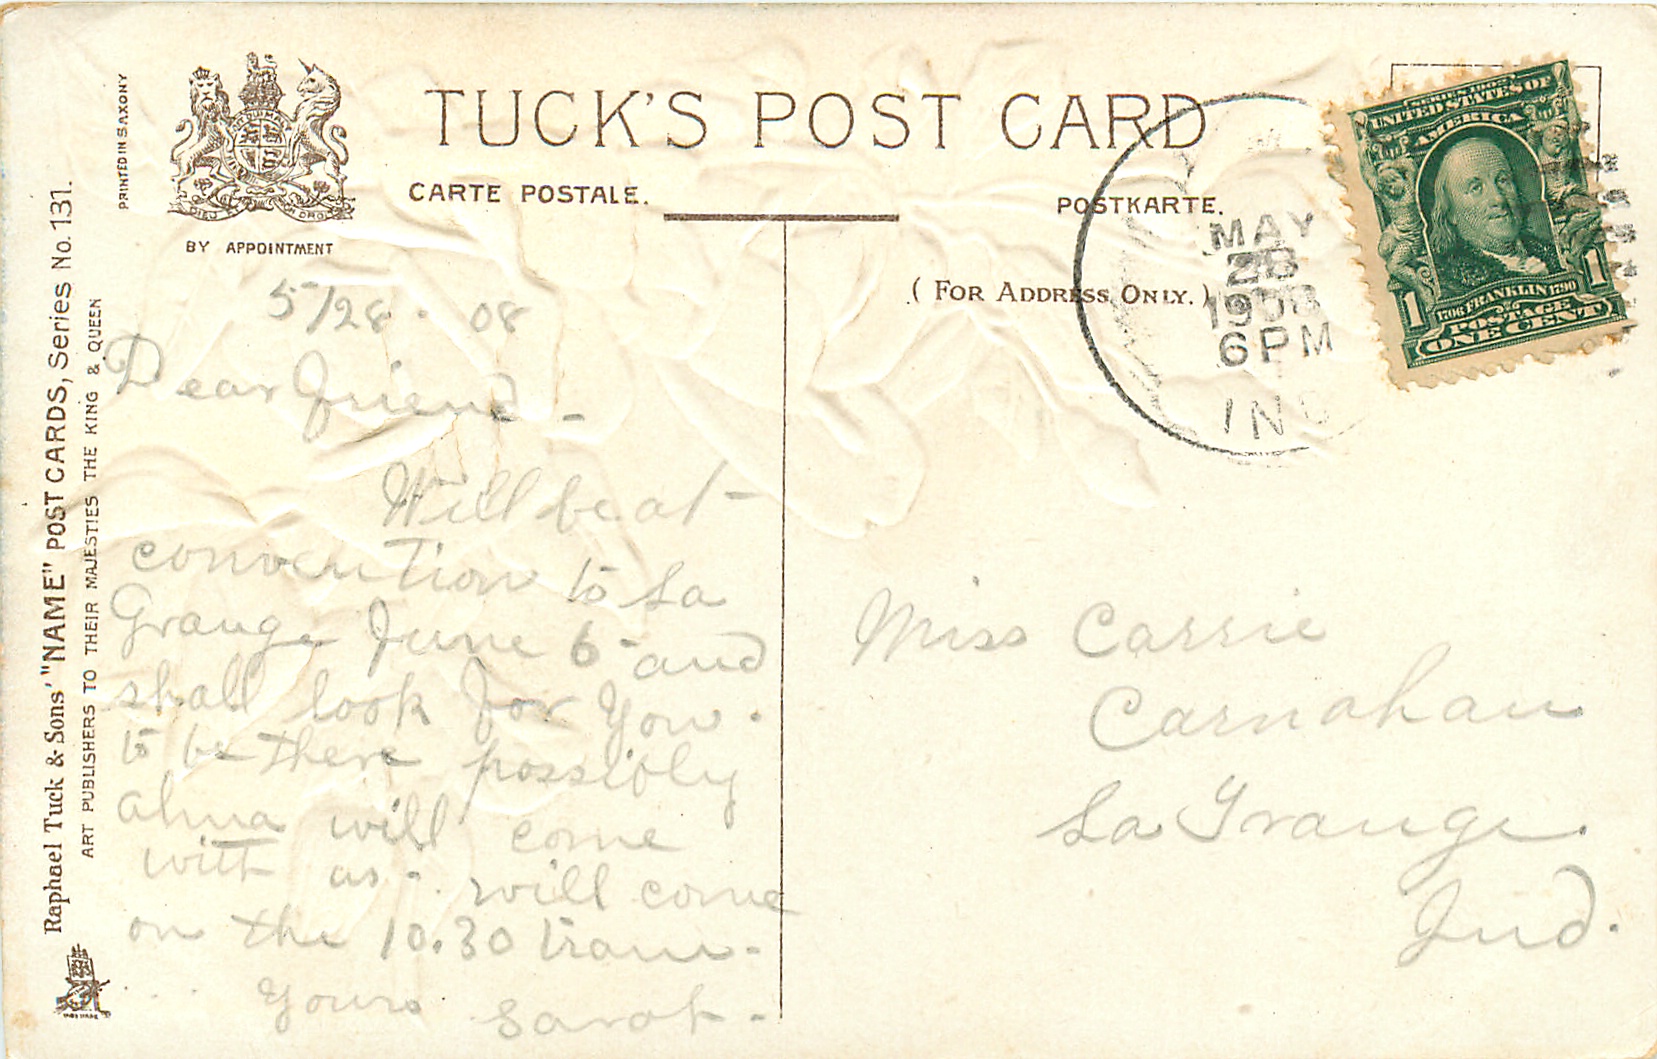 PRINTED IN SAXONY
BY APPOINTMENT
TUCK'S POST CARD
CARTE POSTALE.
POSTKARTE.
(FOR ADDRESS ONLY.)
Raphael Tuck & Sons' "NAME" POST CARDS, Series No. 131.
ART PUBLISHERS TO THEIR MAJESTIES THE KING & QUEEN
MAY
28
1908
6 PM
IND
SERIES 1902
UNITED STATES OF
AMERICA
1706 FRANKLIN 1790
POSTAGE
1 ONE CENT 1
5/28 - 08
Dear Friend -
Will be at
convention to La
Grange June 6 - and
shall look for you
to be there possibly
alma will come
with us - will come
on the 10.30 train -
Yours Sarah -
Miss Carrie
Carnahan
La Grange.
Ind.